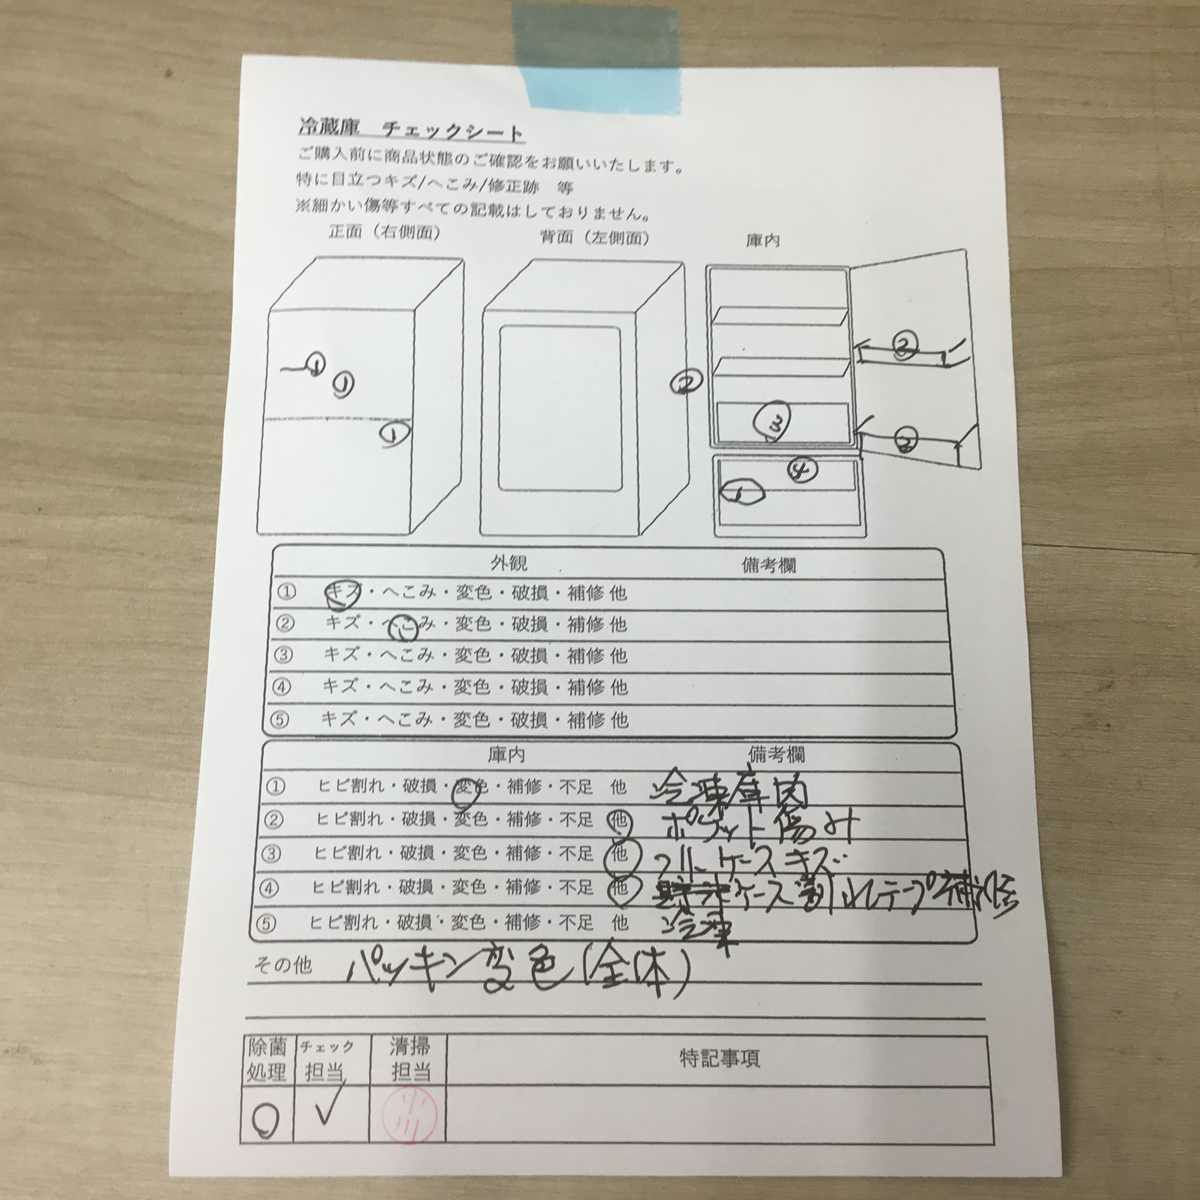 冷蔵庫 チェックシート
ご購入前に商品状態のご確認をお願いいたします。
特に目立つキズ/へこみ/修正跡 等
※細かい傷等すべての記載はしておりません。
正面（右側面） 背面（左側面） 庫内
① ① ①
②
② ②
③
④
①
外観 備考欄
① キズ・へこみ・変色・破損・補修 他
② キズ・へこみ・変色・破損・補修 他
③ キズ・へこみ・変色・破損・補修 他
④ キズ・へこみ・変色・破損・補修 他
⑤ キズ・へこみ・変色・破損・補修 他
庫内 備考欄
① ヒビ割れ・破損・変色・補修・不足 他 冷凍庫内
② ヒビ割れ・破損・変色・補修・不足 他 ポケット傷み
③ ヒビ割れ・破損・変色・補修・不足 他 フルーケースキズ
④ ヒビ割れ・破損・変色・補修・不足 他 ケース割れテープ補修
⑤ ヒビ割れ・破損・変色・補修・不足 他 冷凍
その他 パッキン変色(全体)
除菌処理 チェック担当 清掃担当 特記事項
○ ✓ 中川